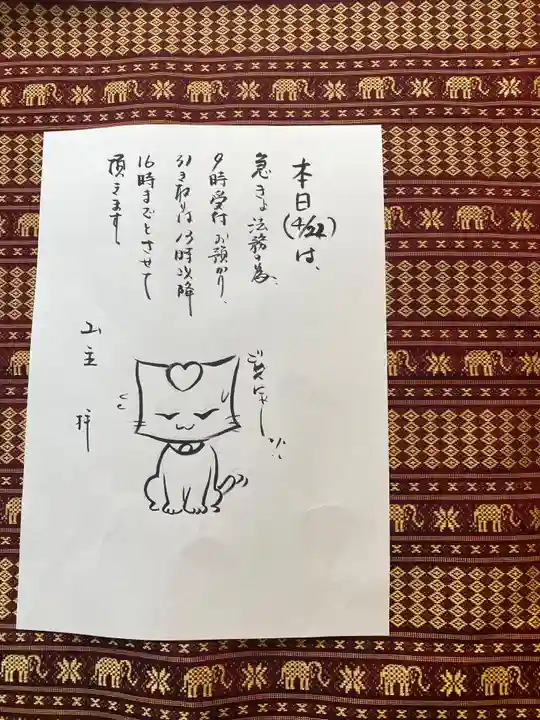 本日(4/22)は、
急きょ法務の為、
9時受付お預かり、
引き取りは13時以降
16時までとさせて
頂きます
山主 拝
ごめんにゃー